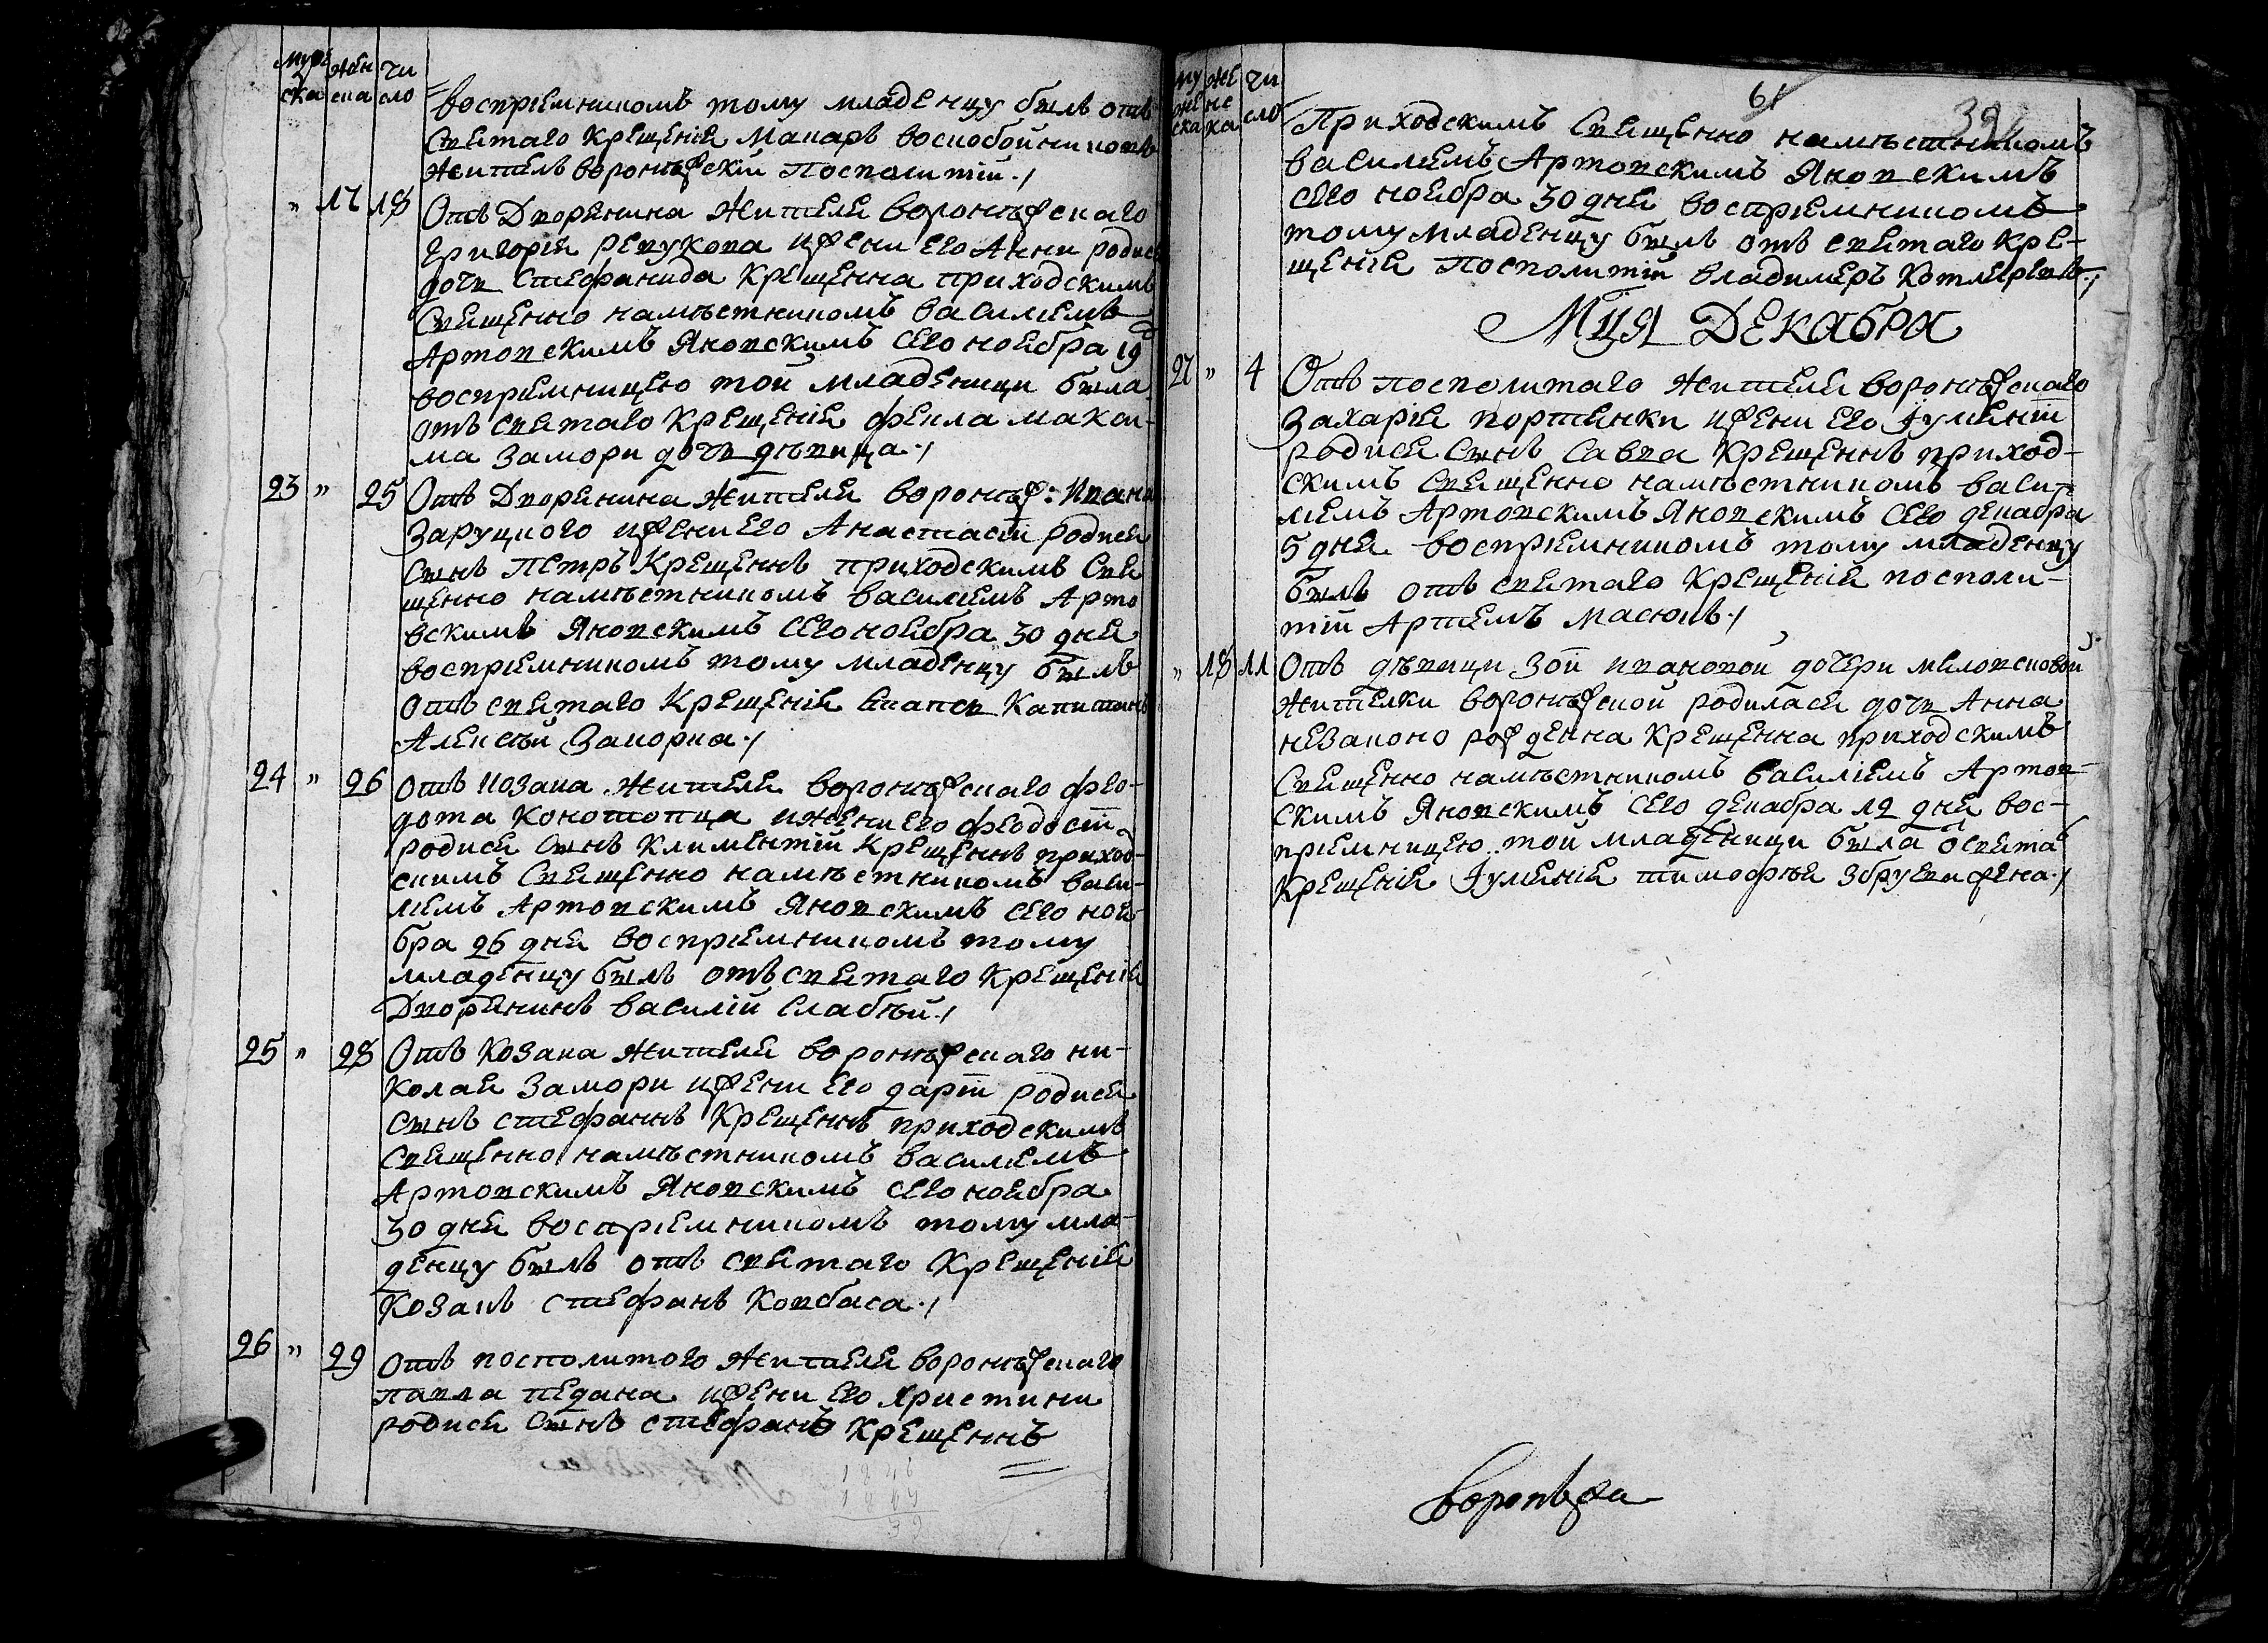 муж жен чи
ска ска сло
воспрiемникомъ тому младенцу былъ отъ
святаго крещенiя Макаръ воскобойниковъ
житель воронѣжскiй посполитiй ./
" 17 18 Отъ Дворянина жителя воронѣжскаго
григорiя ревукова и жени его Анни родис
дочь Стефанида крещенна приходскимъ
священно намѣстникомъ василiемъ
Артовскимъ Яновскимъ сего ноября 19 д
воспрiемницею той младеници била
отъ святаго крещенiя фекла макси-
ма Замори дочь дѣвица ./
23 " 25 Отъ Дворянина жителя воронѣж: Ивана
Заруцкого и жени его Анастасiи родися
сынъ Петръ крещеннъ приходскимъ Свя
щенно намѣстникомъ василiемъ Арто
вскимъ Яновскимъ сего ноября 30 дня
воспрiемникомъ тому младенцу былъ
отъ святаго крещенiя Капитанъ
Алексѣй Закорка ./
24 " 26 Отъ козака жителя воронѣжскаго фео-
дота Конотопца и жени его феодосiи
родися сынъ Климентiй крещеннъ приход-
скимъ Священно намѣстникомъ васи-
лiемъ Артовскимъ Яновскимъ сего ноя-
бра 26 дня воспрiемникомъ тому
младенцу былъ отъ святаго крещенiя
Дворянинъ василiй Слабѣй ./
25 " 28 Отъ козака жителя воронѣжскаго ни-
колая Замори и жени его дарiи родися
сынъ стефаннъ крещеннъ приходскимъ
священно намѣстникомъ василiемъ
Артовскимъ Яновскимъ сего ноября
30 дня воспрiемникомъ тому мла-
денцу былъ отъ святаго крещенiя
козакъ стефанъ Ковбаса ./
26 " 29 Отъ посполитого жителя воронѣжскаго
павла педана и жени его христини
родися сынъ стефанъ крещеннъ
1846
39
61
39
му же чи
же нс сло
ска ка
Приходскимъ Священно намѣстникомъ
василiемъ Артовскимъ Яновскимъ
сего ноября 30 дня воспрiемникомъ
тому младенцу былъ отъ святаго кре-
щенiя посполитiй владимеръ Котляревъ ./
Мця Декабря
27 " 4 Отъ посполитаго жителя воронѣжскаго
Захарiя портянки и жени его Iулiянiи
родися сынъ Савва крещеннъ приход-
скимъ священно намѣстникомъ васи-
лiемъ Артовскимъ Яновскимъ сего декабря
5 дня воспрiемникомъ тому младенцу
былъ отъ святаго крещенiя посполи-
тiй Артемъ Масюкъ ./
" 18 11 Отъ дѣвици Зои ивановой дочери
жителки воронѣжской родилася дочь Анна
незаконо рожденна крещенна приходскимъ
Священно намѣстникомъ василiемъ Артов-
скимъ Яновскимъ сего декабря 12 дня вос-
прiемницею той младеници была о святаг
крещенiя Iулянiя тимофѣя Збруя жена ./
воронѣжа